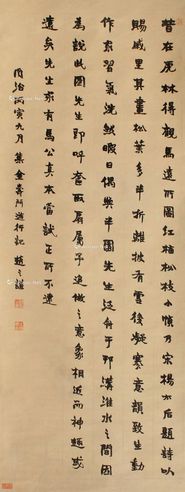 昔在林得觀馬遠所圖紅梅松枝小幀乃宋楊太后題詩以
賜戚里其畫松葉多半折離披有雪後凝寒意韻致生動
作家習氣洗然暇日偶與半園先生于邗溝淮水之間因
為說此圖先生即呼屬予追倣之意象相近而神或
遺矣先生家有馬公真本當試正所不逮
同治丙寅九月集金壽門遊行記 趙之謙